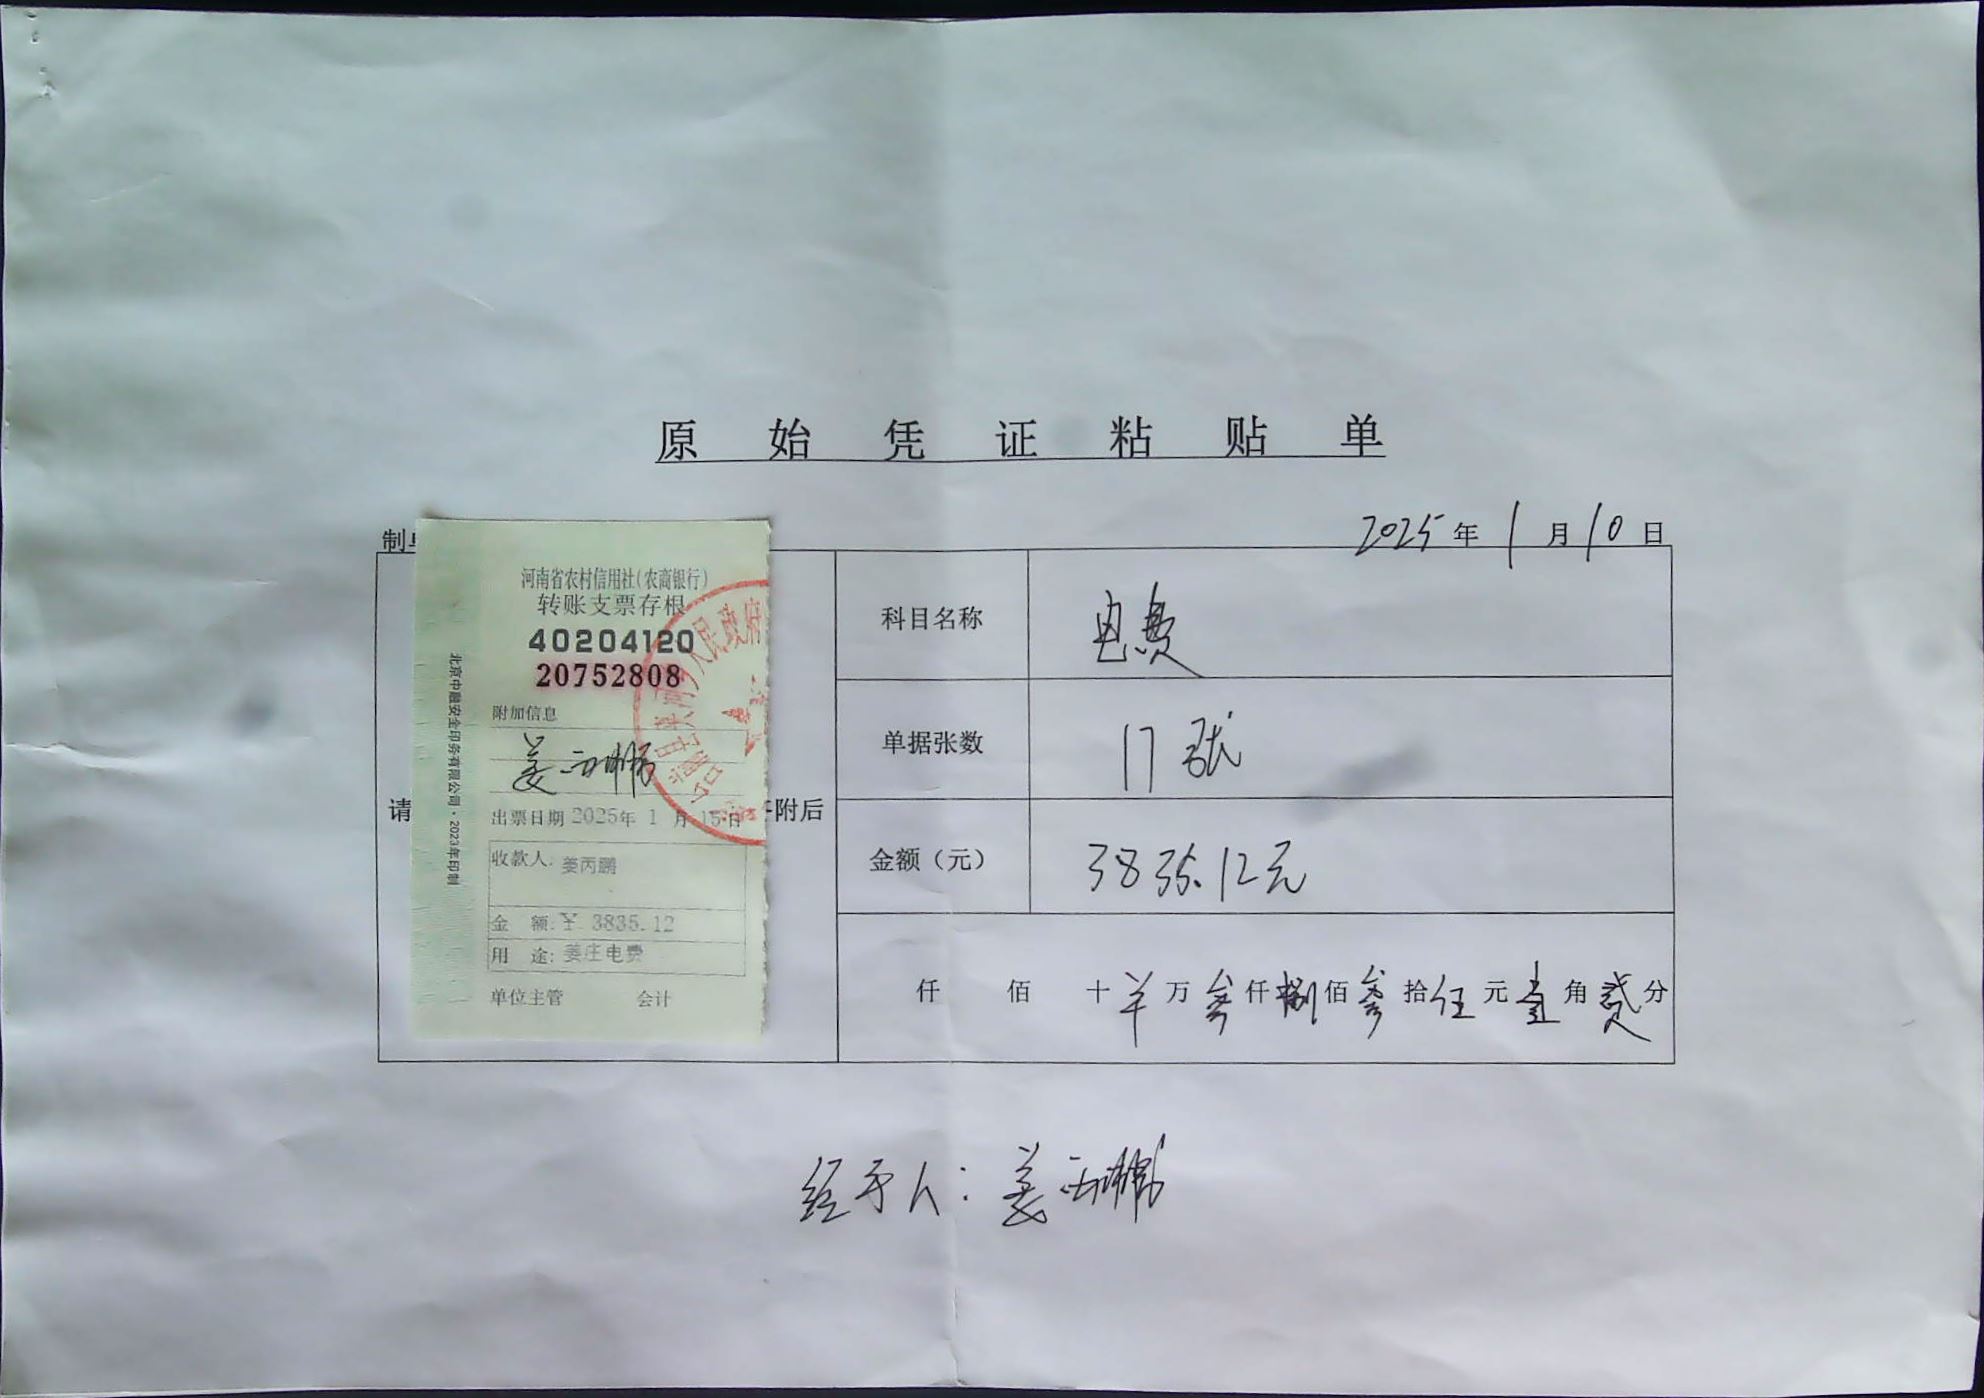 原始凭证粘贴单
2025年1月10日
制单
河南省农村信用社(农商银行)
转账支票存根
40204120
20752808
附加信息
姜丙鹏
出票日期 2025年 1 月 15日
收款人: 姜丙鹏
金 额:¥ 3835.12
用 途: 姜庄电费
单位主管 会计
北京中融安全印务有限公司·2023年印制
人民政府
请
附后
科目名称 电费
单据张数 17张
金额（元） 3835.12元
仟 佰 十 羊 万 叁 仟 捌 佰 叁 拾 伍 元 壹 角 贰 分
经手人：姜丙鹏